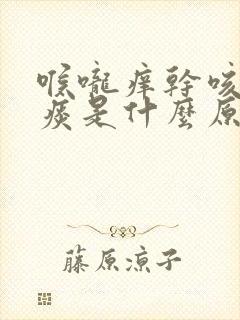 喉嚨痒幹咳
痰是什麼原
藤原涼子